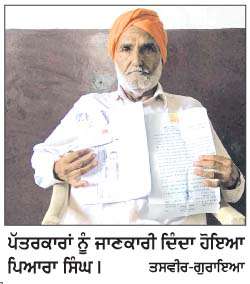 ਪੱਤਰਕਾਰਾਂ ਨੂੰ ਜਾਣਕਾਰੀ ਦਿੰਦਾ ਹੋਇਆ
ਪਿਆਰਾ ਸਿੰਘ। ਤਸਵੀਰ-ਗੁਰਾਇਆ